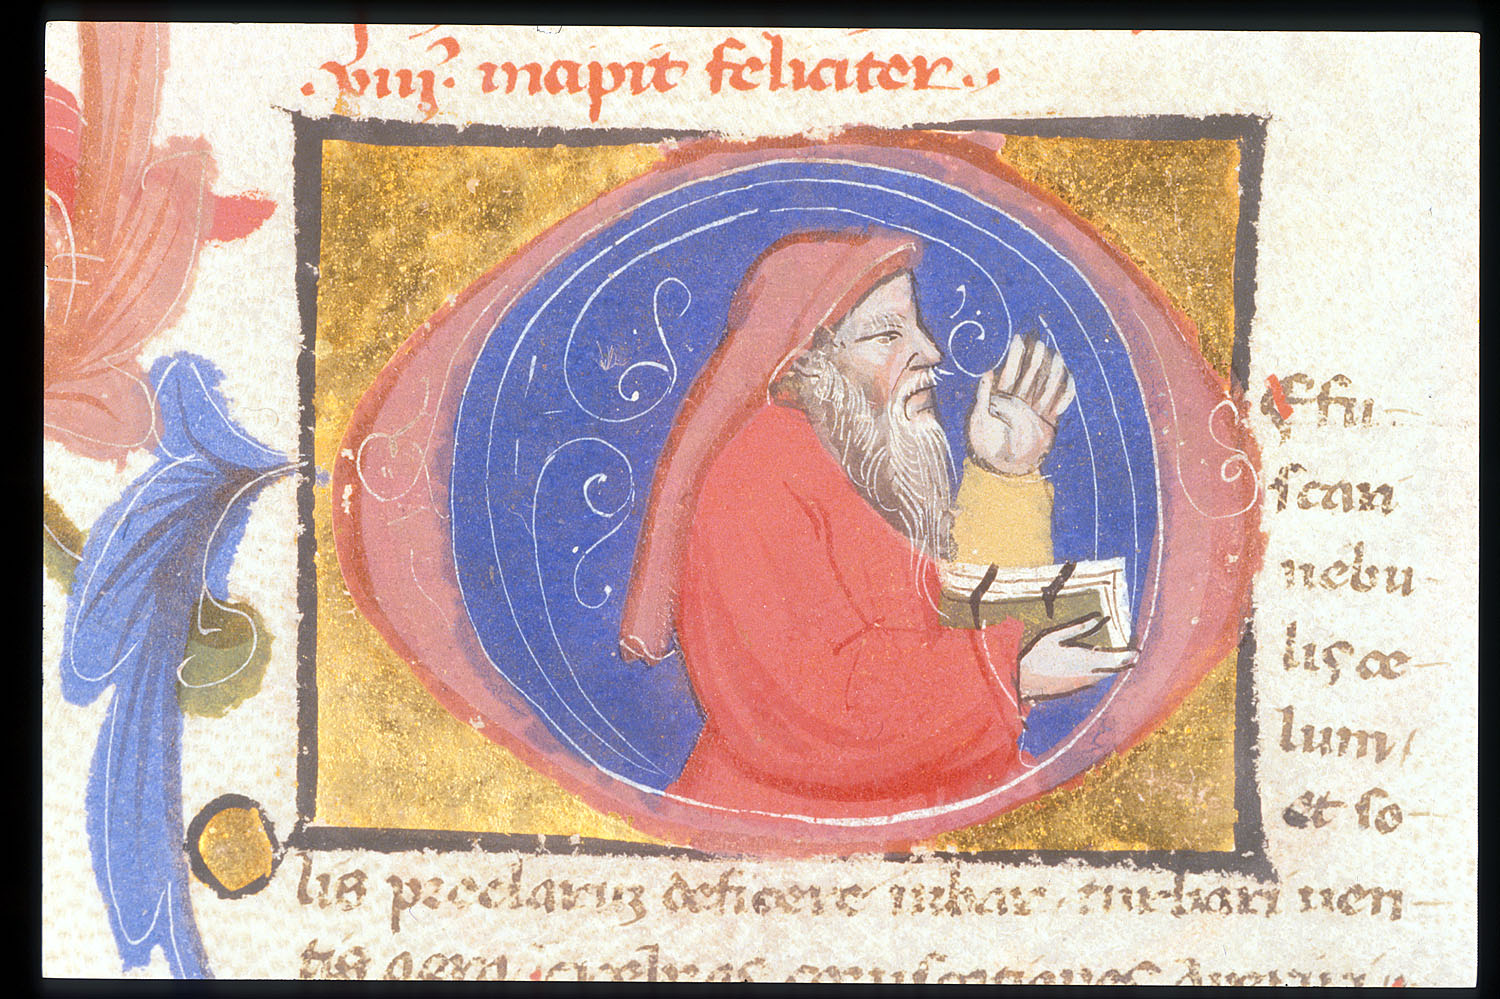 .viiij. incipit feliciter.
Effu
scari
nebu
lis ce
lum
et so
lis preclarum deficere iubar. turbari uen